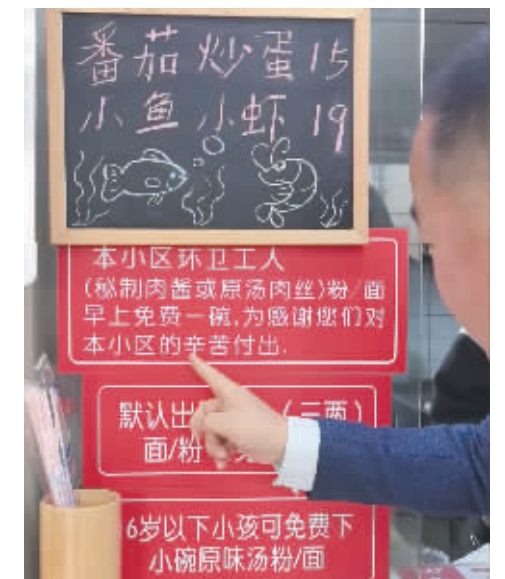 番茄炒蛋15
小鱼小虾19
本小区环卫工人
(秘制肉酱或原汤肉丝)粉/面
早上免费一碗,为感谢您们对
本小区的辛苦付出.
默认出 (三两)
面/粉
6岁以下小孩可免费下
小碗原味汤粉/面